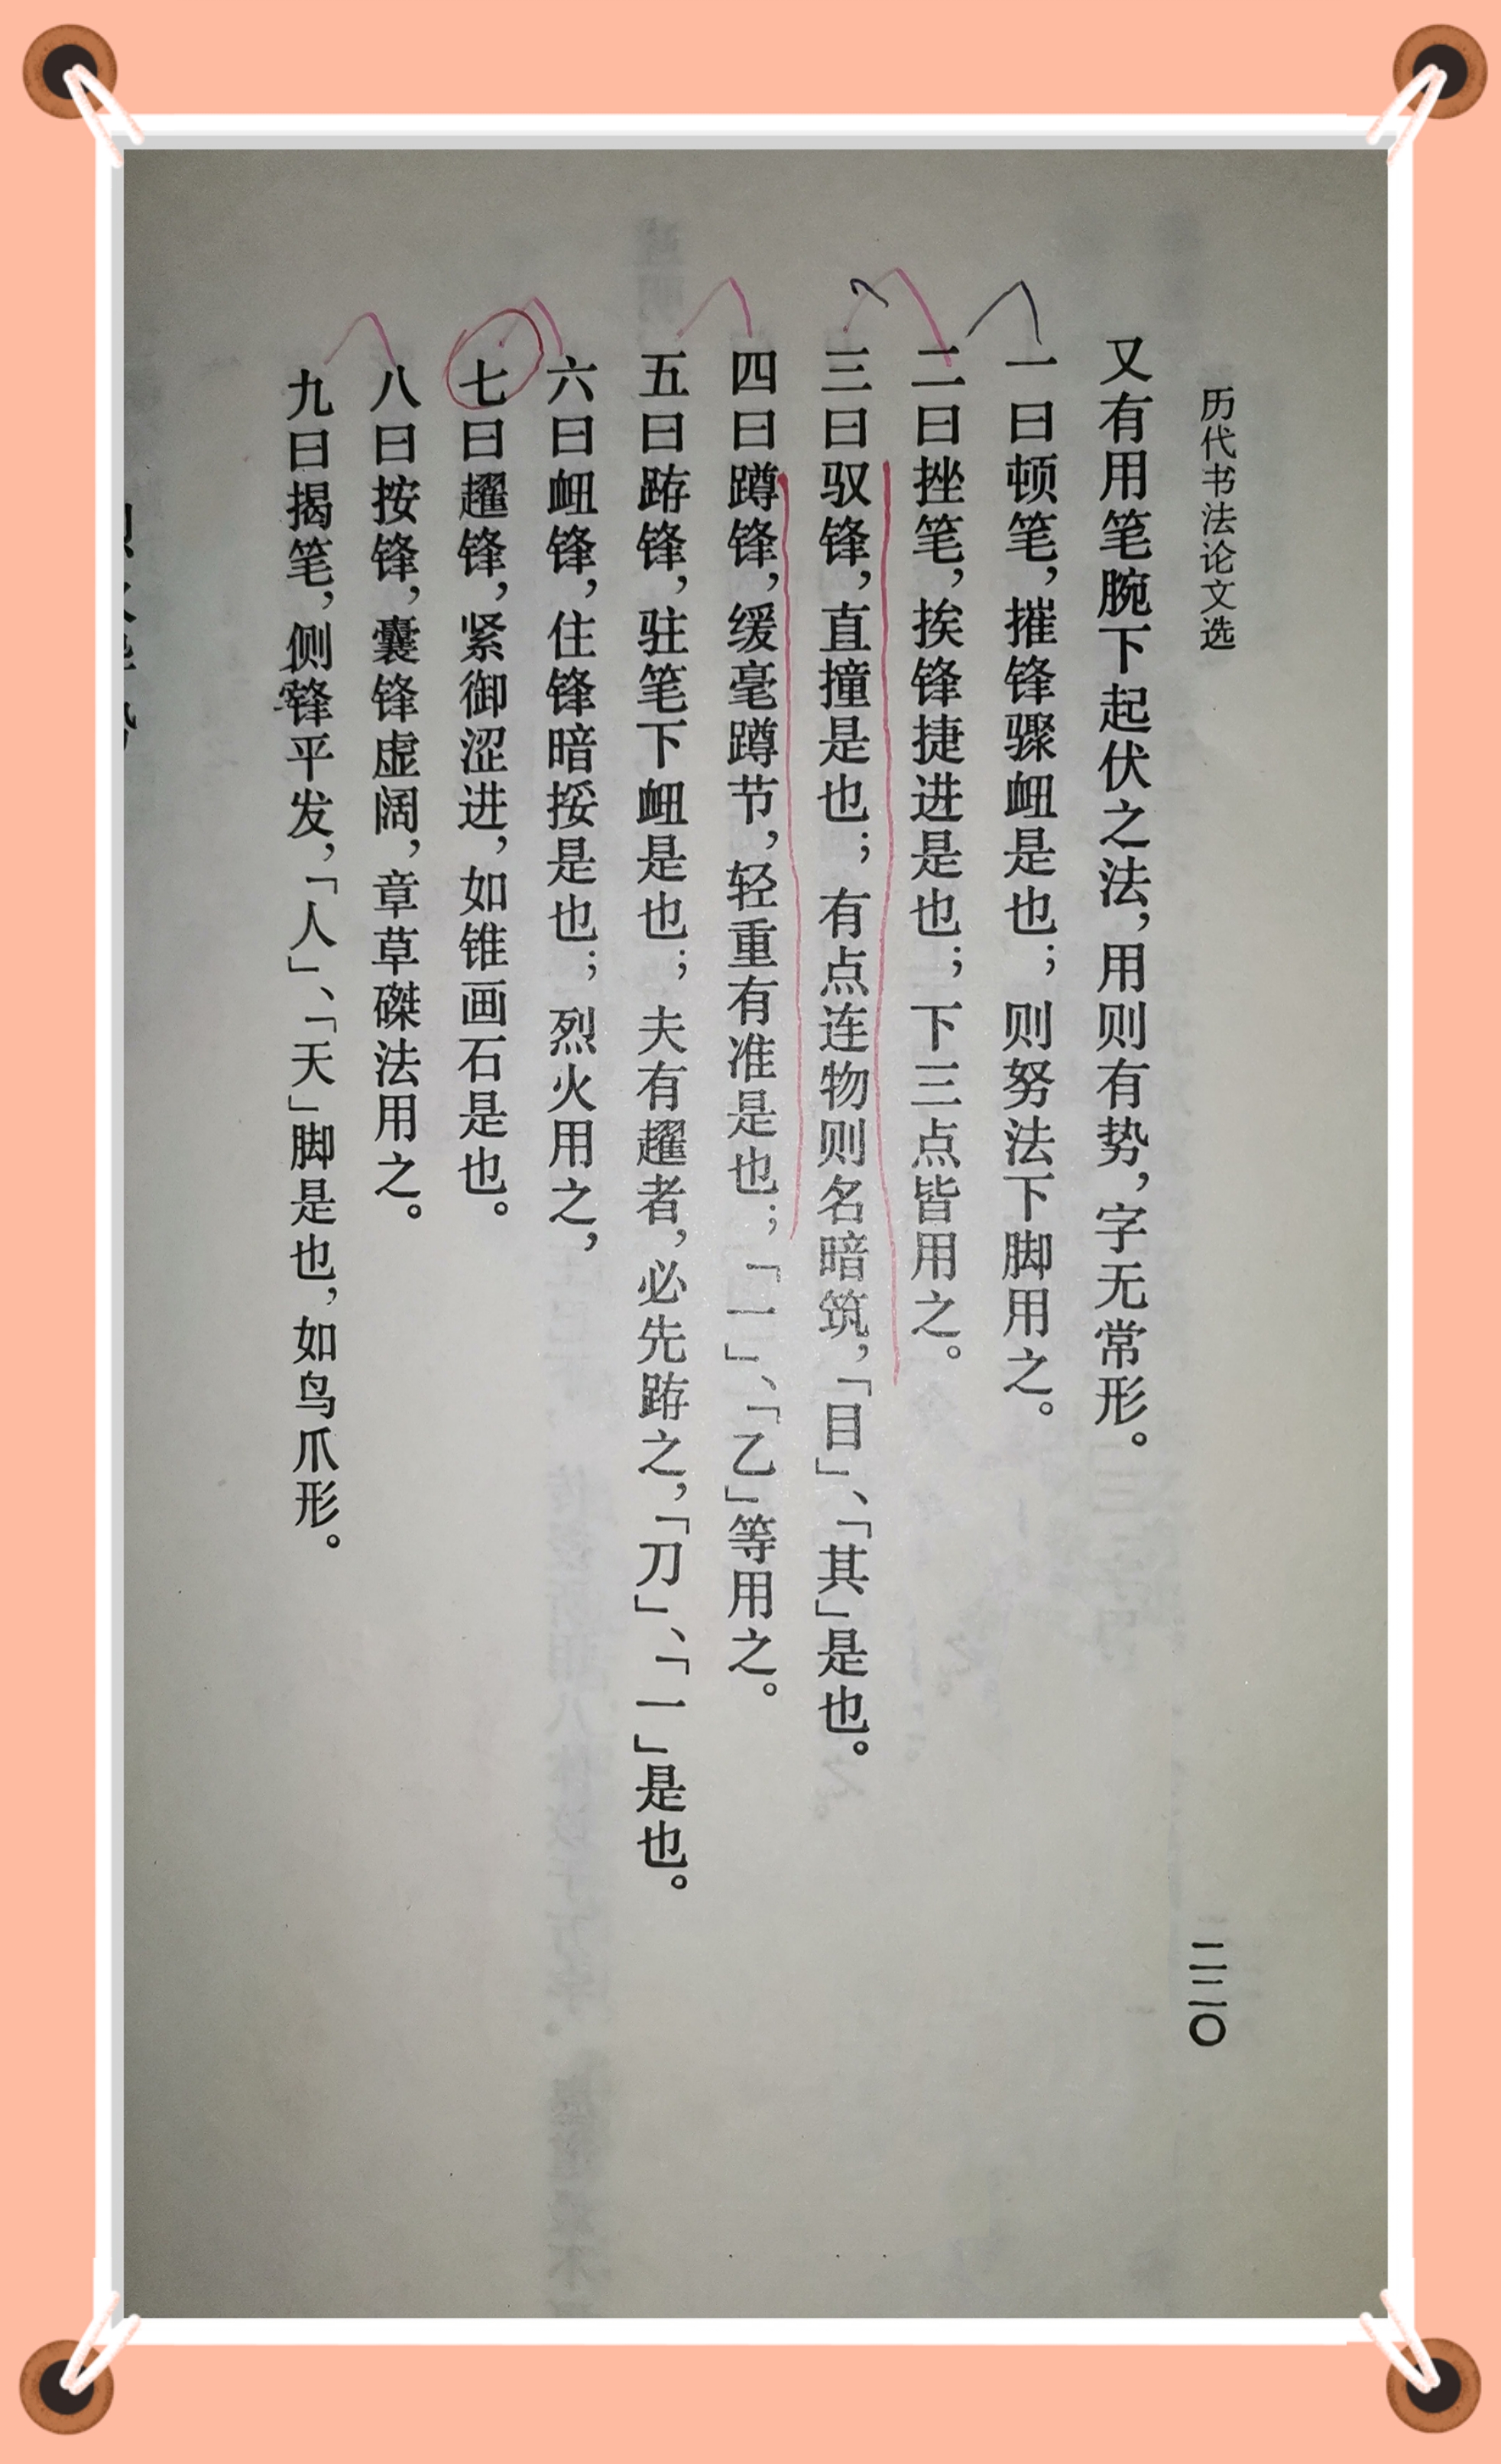 历代书法论文选
二二〇
又有用笔腕下起伏之法,用则有势,字无常形。
一曰顿笔,摧锋骤衄是也;则努法下脚用之。
二曰挫笔,挨锋捷进是也;下三点皆用之。
三曰驭锋,直撞是也;有点连物则名暗筑,「目」、「其」是也。
四曰蹲锋,缓毫蹲节,轻重有准是也;「一」、「乙」等用之。
五曰𨁝锋,驻笔下衄是也;夫有趯者,必先𨁝之,「刀」、「一」是也。
六曰衄锋,住锋暗挼是也;烈火用之,
七曰趯锋,紧御涩进,如锥画石是也。
八曰按锋,囊锋虚阔,章草磔法用之。
九曰揭笔,侧锋平发,「人」、「天」脚是也,如鸟爪形。